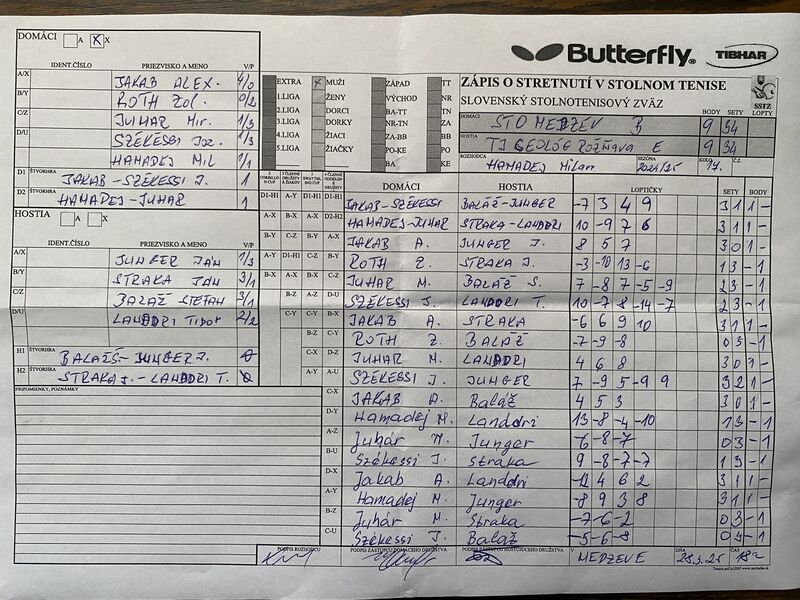 DOMÁCI A X X
IDENT.ČÍSLO PRIEZVISKO A MENO V/P
A/X JAKAB ALEX. 4/0
B/Y ROTH ZOL. 0/2
C/Z JUHAR Mir. 1/3
D/U SZÉKESSI Joz. 1/3
HAMADEJ MIL 1/1
D1 ŠTVORHRA JAKAB-SZÉKESSI J. 1
D2 ŠTVORHRA HAMADEJ-JUHAR 1
HOSTIA A X
IDENT.ČÍSLO PRIEZVISKO A MENO V/P
A/X JUNGER JÁN 1/3
B/Y STRAKA JÁN 3/1
C/Z BALÁŽ ŠTEFAN 3/1
D/U LANDORI Tibor 2/2
H1 ŠTVORHRA BALÁŽ-JUNGER J. 0
H2 ŠTVORHRA STRAKA J.-LANDORI T. 0
PRIPOMIENKY, POZNÁMKY
Butterfly TIBHAR
EXTRA x MUŽI ZÁPAD TT
1.LIGA ŽENY VÝCHOD NR
2.LIGA DORCI BA-TT TN
3.LIGA DORKY NR-TN ZA
4.LIGA ŽIACI ZA-BB BB
5.LIGA ŽIAČKY PO-KE PO
BA KE
ZÁPIS O STRETNUTÍ V STOLNOM TENISE
SLOVENSKÝ STOLNOTENISOVÝ ZVÄZ
SSTZ
BODY SETY LOPTY
DOMÁCI STO MEDZEV B 9
HOSTIA TJ GEOLÓG ROŽŇAVA E 9 34
ROZHODCA HAMADEJ Milan SEZÓNA 2024/25 KOLO 17. Č.
DOMÁCI HOSTIA LOPTIČKY SETY BODY
D1-H1 A-Y D1-H1 D1-H1 JAKAB-SZÉKESSI BALÁŽ-JUNGER -7 3 4 9 3 1 1 -
A-X B-X A-X D2-H2 HAMADEJ-JUHAR STRAKA-LANDORI 10 -9 7 6 3 1 1 -
B-Y C-Z B-Y A-X JAKAB A. JUNGER J. 8 5 7 3 0 1 -
A-Y D1-H1 C-Z B-Y ROTH Z. STRAKA J. -3 -10 13 -6 1 3 - 1
B-X A-X B-X C-Z JUHAR M. BALÁŽ S. 7 -8 7 -5 -9 2 3 - 1
B-Z A-Z D-U SZÉKESSI J. LANDORI T. 10 -7 8 -14 -7 2 3 - 1
C-Y C-Y B-X JAKAB A. STRAKA -6 6 9 10 3 1 1 -
B-Z C-Y ROTH Z. BALÁŽ -7 -9 -8 0 3 - 1
C-X D-Z JUHAR M. LANDORI 4 6 8 3 0 1 -
A-Y A-U SZÉKESSI J. JUNGER 7 -9 5 -9 9 3 2 1 -
C-X JAKAB A. Baláž 4 5 3 3 0 1 -
D-Y Hamadej M. Landori 13 -8 -4 -10 1 3 - 1
A-Z Juhár M. Junger -6 -8 -7 0 3 - 1
B-U Székessi J. Straka 9 -8 -7 -7 1 3 - 1
D-X Jakab A. Landori -12 4 6 2 3 1 1 -
A-Y Hamadej M. Junger -8 9 3 8 3 1 1 -
B-Z Juhár M. Straka -7 -6 -2 0 3 - 1
C-U Székessi J. Baláž -5 -6 -8 - 1
PODPIS ROZHODCU PODPIS ZÁSTUPCU DOMÁCEHO DRUŽSTVA PODPIS ZÁSTUPCU HOSTUJÚCEHO DRUŽSTVA V MEDZEVE DŇA 28.3.25 ČAS